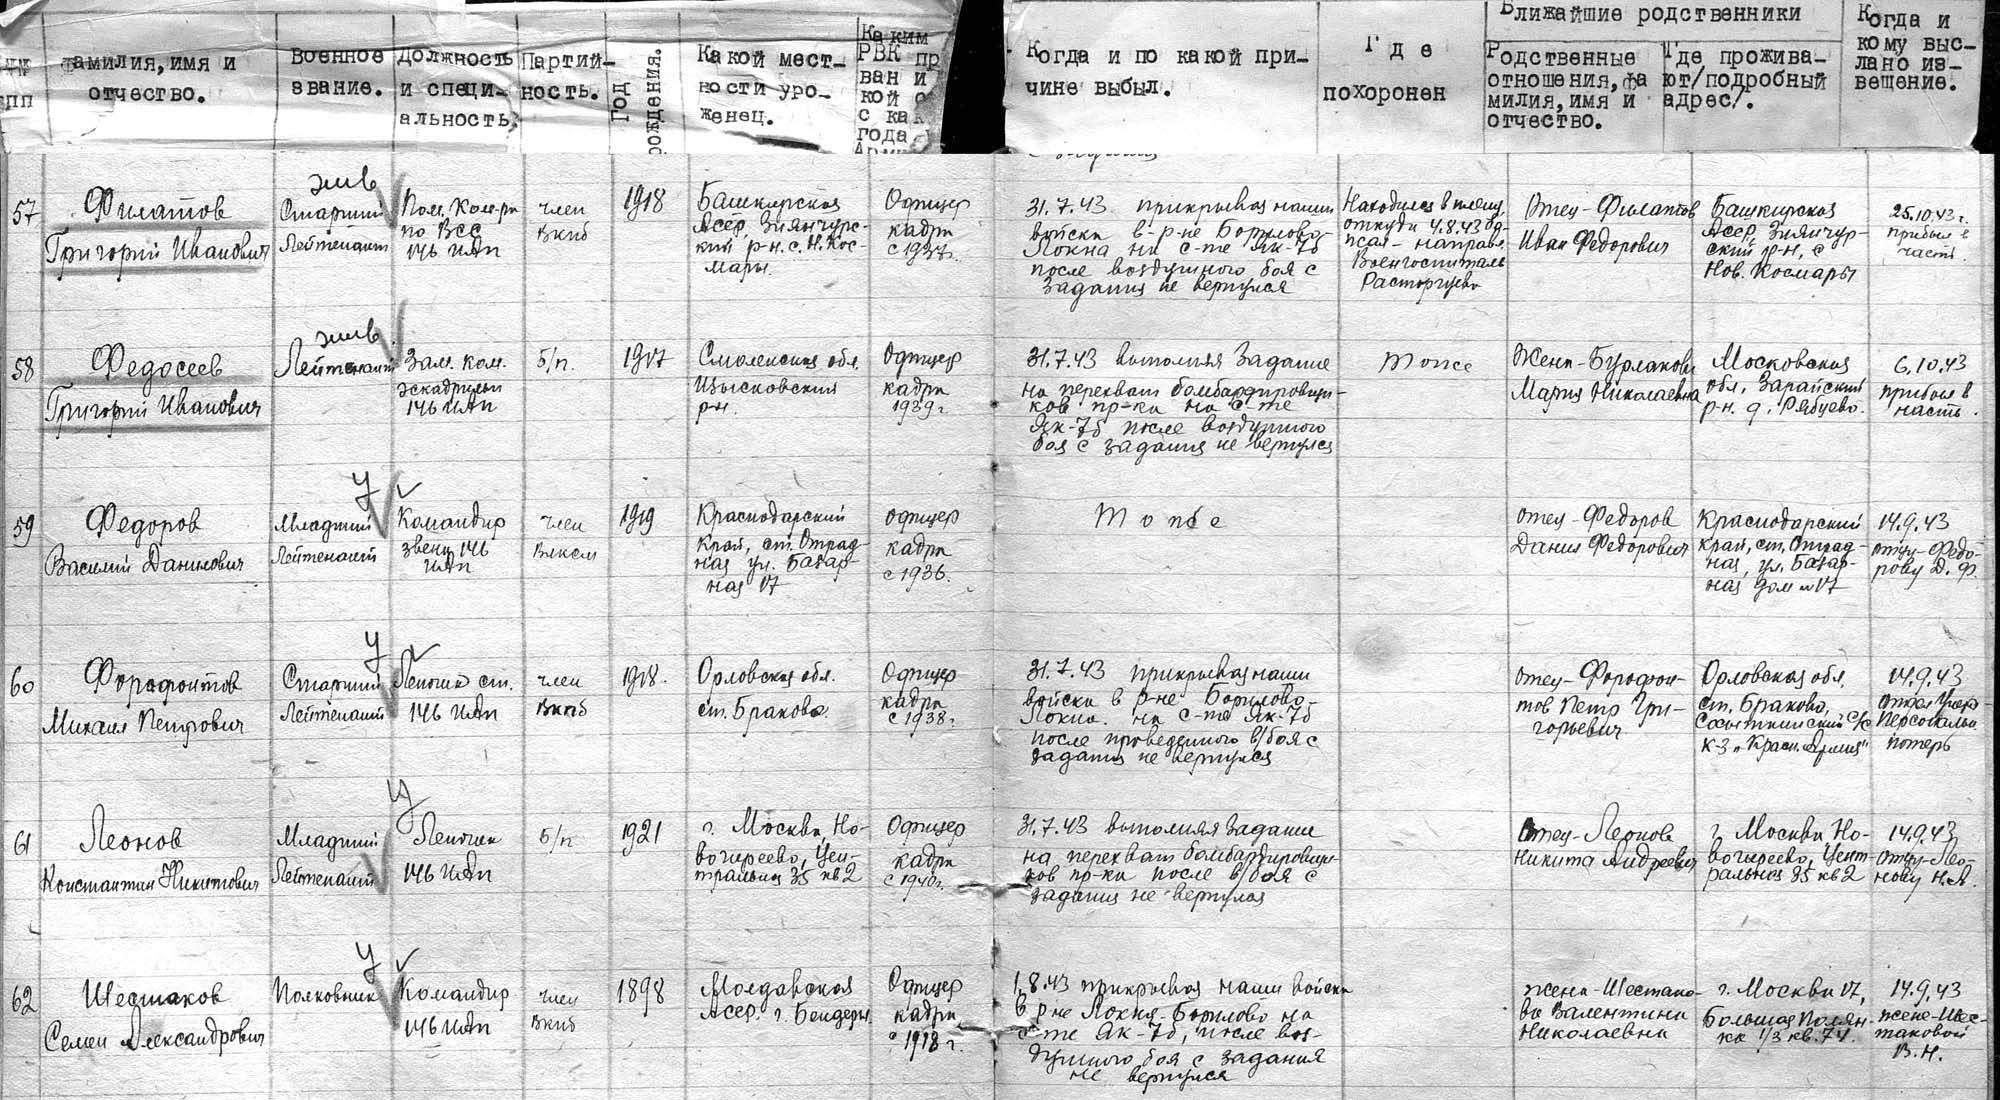 №№
пп
Фамилия, имя и
отчество.
Военное
звание.
Должность
и специ-
альность.
Партий-
ность.
Год
рождения.
Какой мест-
ности уро-
женец.
Каким
РВК пр
ван и
кой с
с ка
года
Когда и по какой при-
чине выбыл.
Где
похоронен
Ближайшие родственники
Родственные
отношения, фа
милия, имя и
отчество.
Где прожива-
ют/подробный
адрес/.
Когда и
кому выс-
лано из-
вещение.
57
Филатов
Григорий Иванович
жив
Старший
Лейтенант
Пом. Ком-ра
по ВСС
146 ИАП
член
ВКПб
1918
Башкирская
Асср, Зиянчур-
кий р-н. с. Н. Кос-
мары.
Офицер
кадра
с 1937г.
31.7.43 прикрывая наши
войска в р-не Борилово-
Локна на с-те Як-7б
после воздушного боя с
задания не вернулся
Находился в плену,
откуда 4.8.43 
направл.
Военгоспиталь
Расторгуево
Отец-Филатов
Иван Федорович
Башкирская
Асср, Зиянчур-
ский р-н, с
Нов. Космары
25.10.43г.
прибыл в
часть.
58
Федосеев
Григорий Иванович
жив
Лейтенант
Зам. ком.
эскадрильи
146 ИАП
б/п.
1917
Смоленская обл.
Издесковский
р-н.
Офицер
кадра
1939г
31.7.43 выполняя задание
на перехват бомбардировщи-
ков пр-ка на с-те
Як-7б после воздушного
боя с задания не вернулся
тоже
Жена-Бурлакова
Мария Николаевна
Московская
обл, Зарайский
р-н. д. Рябцево.
6.10.43
прибыл в
часть.
59
Федоров
Василий Данилович
У
Младший
Лейтенант
Командир
звена 146
ИАП
член
Влксм
1919
Краснодарский
Край, ст. Отрад-
ная ул. Базар-
ная 17
офицер
кадра
с 1936.
Тоже
отец-Федоров
Данил Федорович
Краснодарский
край, ст. Отрад-
ная, ул. Базар-
ная дом № 17
14.9.43
отцу-Федо-
рову Д. Ф.
60
Форафонтов
Михаил Петрович
У
Старший
Лейтенант
Летчик ст.
146 ИАП
член
ВКПб
1918.
Орловская обл.
ст. Браково.
Офицер
кадра
с 1938г.
31.7.43 прикрывая наши
войска в р-не Борилово-
Локна. на с-те Як-7б
после проведенного в/боя с
задания не вернулся
отец-Форофон-
тов Петр Гри-
горьевич
Орловская обл.
ст. Браково,
с/с
к-з "Красн. Армия"
14.9.43
отдел учета
персональн.
потерь
61
Леонов
Константин Никитович
У
Младший
Лейтенант
Летчик
146 ИАП
б/п
1921
г. Москва, Но-
вогиреево, Цен-
тральная 35 кв 2
Офицер
кадра
с 1940г.
31.7.43 выполняя задание
на перехват бомбардировщи-
ков пр-ка после в/боя с
задания не вернулся
Отец-Леонов
Никита Андреевич
г. Москва Но-
вогиреево, Цент-
ральная 35 кв 2
14.9.43
отцу-Лео-
нову Н.А.
62
Шестаков
Семен Александрович
У
Полковник
Командир
146 ИАП
член
ВКПб
1898
Молдавская
Асср. г. Бендеры.
Офицер
кадра
с 1918г.
1.8.43 прикрывая наши войска
в р-не Локня-Борилово на
с-те Як-7б, после воз-
душного боя с задания
не вернулся
жена-Шестако-
ва Валентина
Николаевна
г. Москва 17,
Большая Полян-
ка 1/3 кв. 74.
14.9.43
жене-Шес-
таковой
В.Н.